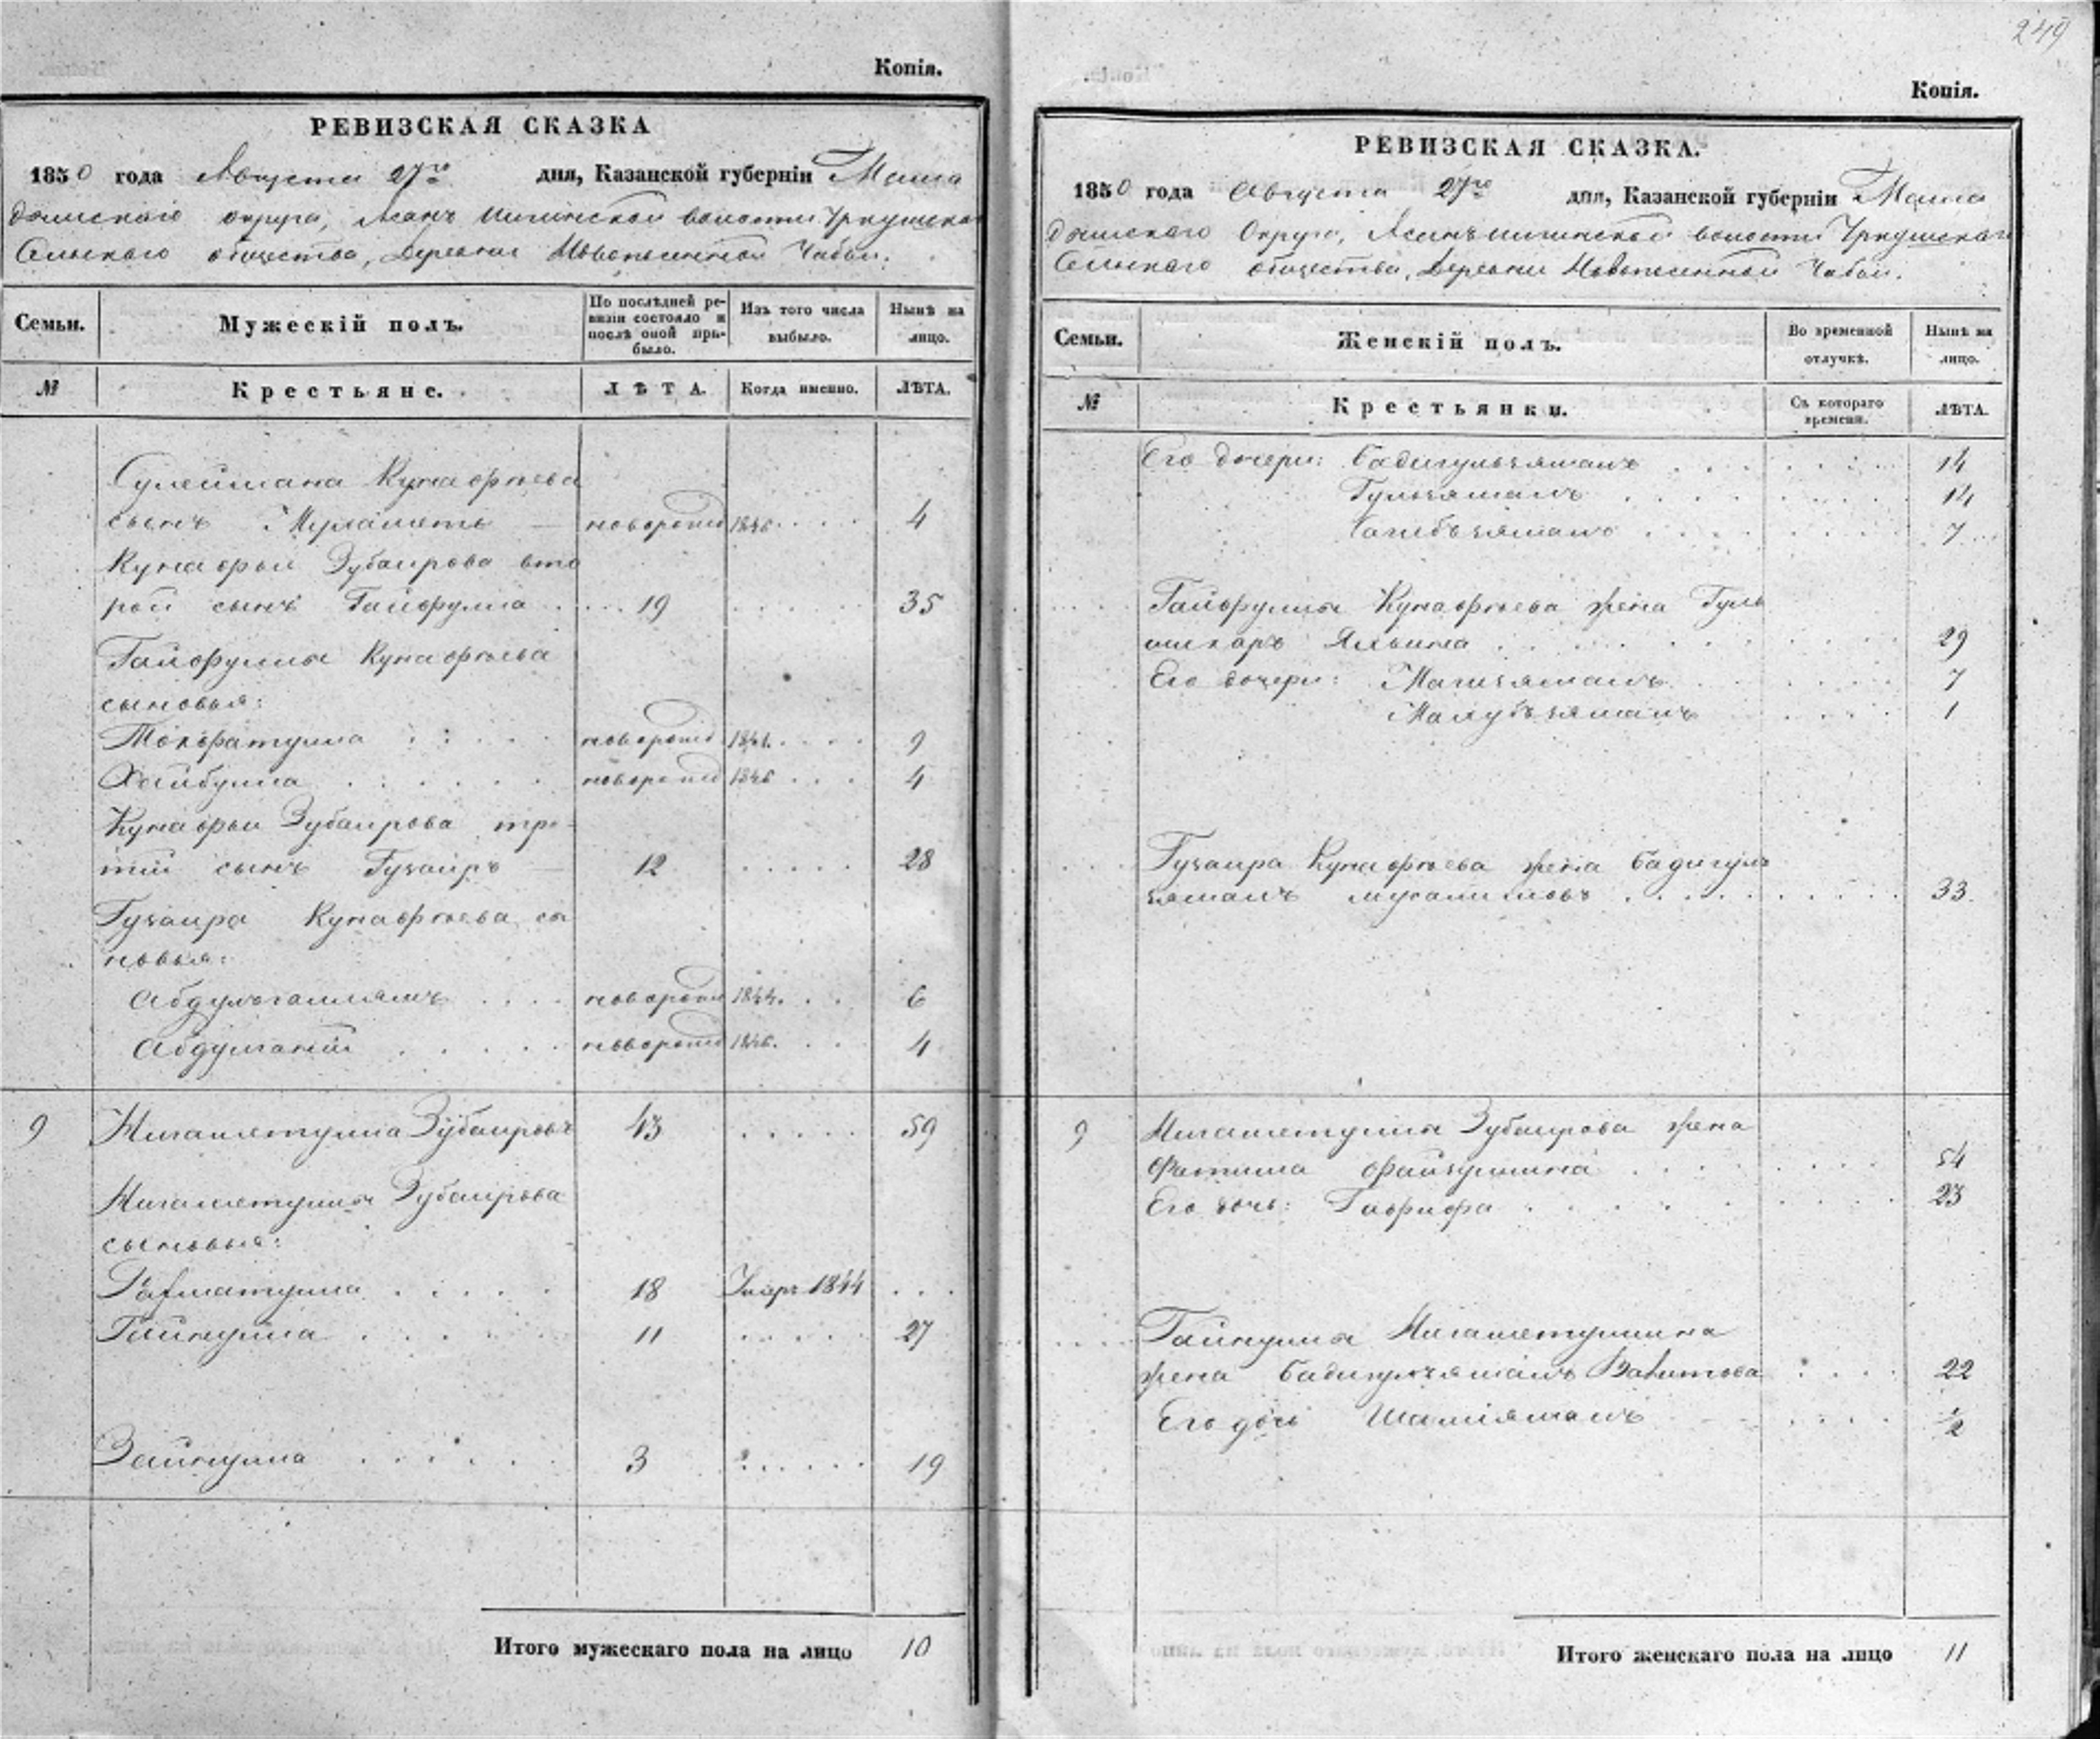 Копія.
РЕВИЗСКАЯ СКАЗКА
1850 года Августа 27го дня, Казанской губерніи Мама
дышскаго округа, волости
Сельскаго общества, Деревни Чабьи.
Семьи.
Мужескій полъ.
По послѣдней ре-
визіи состояло и
послѣ оной при-
было.
Изъ того числа
выбыло.
Нынѣ на
лицо.
№
Крестьяне.
ЛѢТА.
Когда именно.
ЛѢТА.
Сулеймана Кунафѣева
сынъ новорожд 1846 4
Кунафьи Зубаирова вто
рой сынъ Гайфулла 19 35
Гайфуллы Кунафѣева
сыновья:
новорожд 1841. 9
Хайбулла новорожд 1846 4
Кунафьи Зубаирова тре-
тій сынъ Гузаиръ 12 28
Гузаира Кунафѣева сы
новья:
новорожд 1844. 6
Абдулганій новорожд 1846. 4
9 Нигаметулла Зубаировъ 43 59
Нигаметуллы Зубаирова
сыновья:
Рахматулла 18 Умеръ 1844
Гайнулла 11 27
Зайнулла 3 19
Итого мужескаго пола на лицо 10
249
Копія.
РЕВИЗСКАЯ СКАЗКА.
1850 года Августа 27го дня, Казанской губерніи Мама
дышскаго Округа, волости
Сельскаго общества, Деревни Чабьи.
Семьи.
Женскій полъ.
Во временной
отлучкѣ.
Нынѣ на
лицо.
№
Крестьянки.
Съ котораго
времени.
ЛѢТА.
Его дочери: Бадигульзямалъ 14
Гульзямалъ 14
7
Гайфуллы Кунафѣева жена Гуль
29
Его дочери: 7
1
Гузаира Кунафѣева жена Бадигул
зямалъ 33
9 Нигаметуллы Зубаирова жена
Фатима Файзуллина 54
Его дочь: Гафифа 23
Гайнуллы Нигаметуллина
жена Бадигулзямалъ Вахитова 22
Его дочь 1/2
Итого женскаго пола на лицо 11